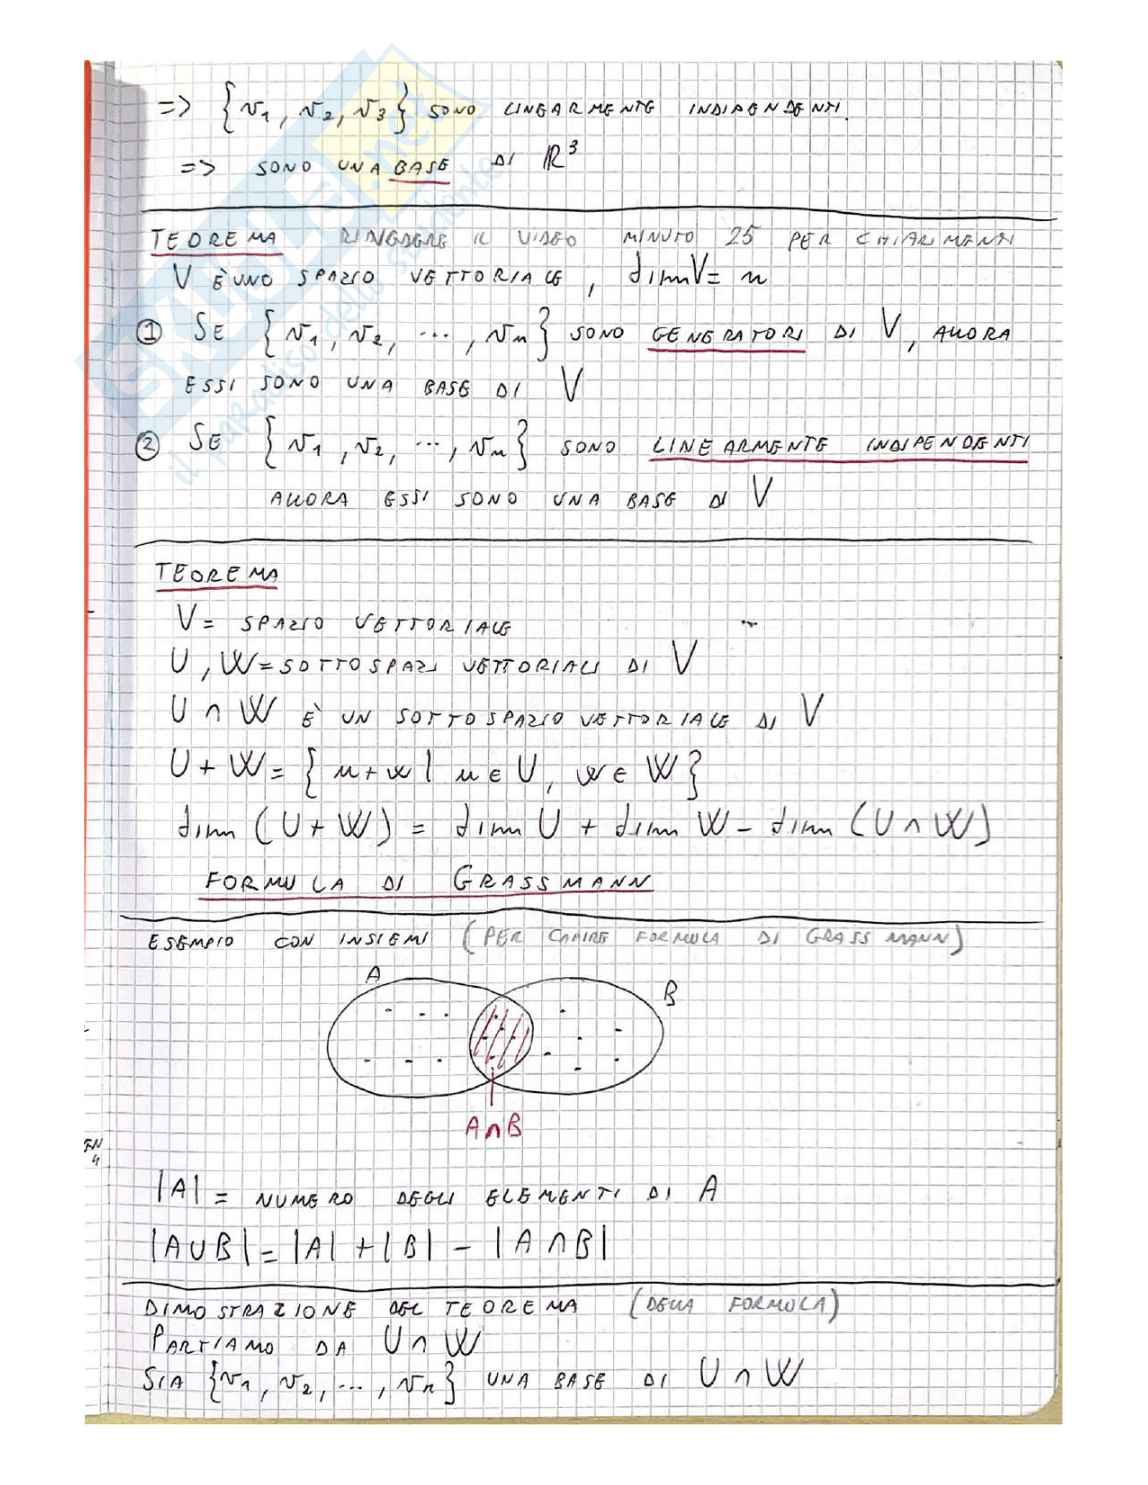 => {v1, v2, v3} SONO LINEARMENTE INDIPENDENTI.
=> SONO UNA BASE DI ℝ³
TEOREMA RIVEDERE IL VIDEO MINUTO 25 PER CHIARIMENTI
V È UNO SPAZIO VETTORIALE, dim V = n
① SE {v1, v2, ..., vn} SONO GENERATORI DI V, ALLORA
ESSI SONO UNA BASE DI V
② SE {v1, v2, ..., vn} SONO LINEARMENTE INDIPENDENTI
ALLORA ESSI SONO UNA BASE DI V
TEOREMA
V = SPAZIO VETTORIALE
U, W = SOTTOSPAZI VETTORIALI DI V
U ∩ W È UN SOTTOSPAZIO VETTORIALE DI V
U + W = {u + w | u ∈ U, w ∈ W}
dim (U + W) = dim U + dim W - dim (U ∩ W)
FORMULA DI GRASSMANN
ESEMPIO CON INSIEMI (PER CAPIRE FORMULA DI GRASSMANN)
A
B
A∩B
|A| = NUMERO DEGLI ELEMENTI DI A
|A∪B| = |A| + |B| - |A ∩ B|
DIMOSTRAZIONE DEL TEOREMA (DELLA FORMULA)
PARTIAMO DA U ∩ W
SIA {v1, v2, ..., vr} UNA BASE DI U ∩ W
SKUOLA.net
il paradiso dello studente